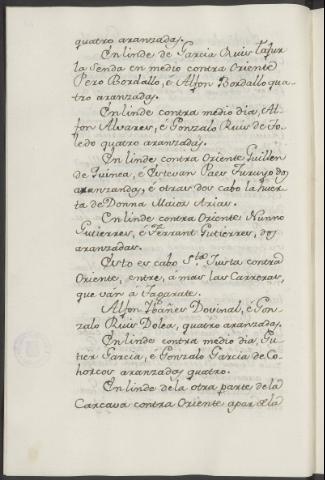 quatro aranzadas.
En linde de Garcia Ruis Tafur
la senda en medio contra Oriente
Pero Bordallo, é Alfon Bordallo qua
tro aranzadas.
En linde contra medio dia, Al-
fon Alvares, é Gonzalo Ruis de To-
ledo quatro aranzadas.
En linde contra Oriente Guillen
de Guinea, é Estevan Paes dos
aranzandas, é otras dos cabo la huer
ta de Donna Maior Arias.
En linde contra Oriente Nunno
Gutierres, é Ferrant Gutierres, dos
aranzadas.
Esto es cabo S.ta Justa contra
Oriente, entre, á mas las Carreras,
que ván á Tagarete.
Alfon Ibañes Dovinal, é Gon-
zalo Ruis Dolea, quatro aranzadas.
En linde contra medio dia, Gu-
tier Garcia, é Gonzalo Garcia de Co-
horcos aranzadas quatro.
En linde de la otra parte de la
Carcava contra Oriente apar de la